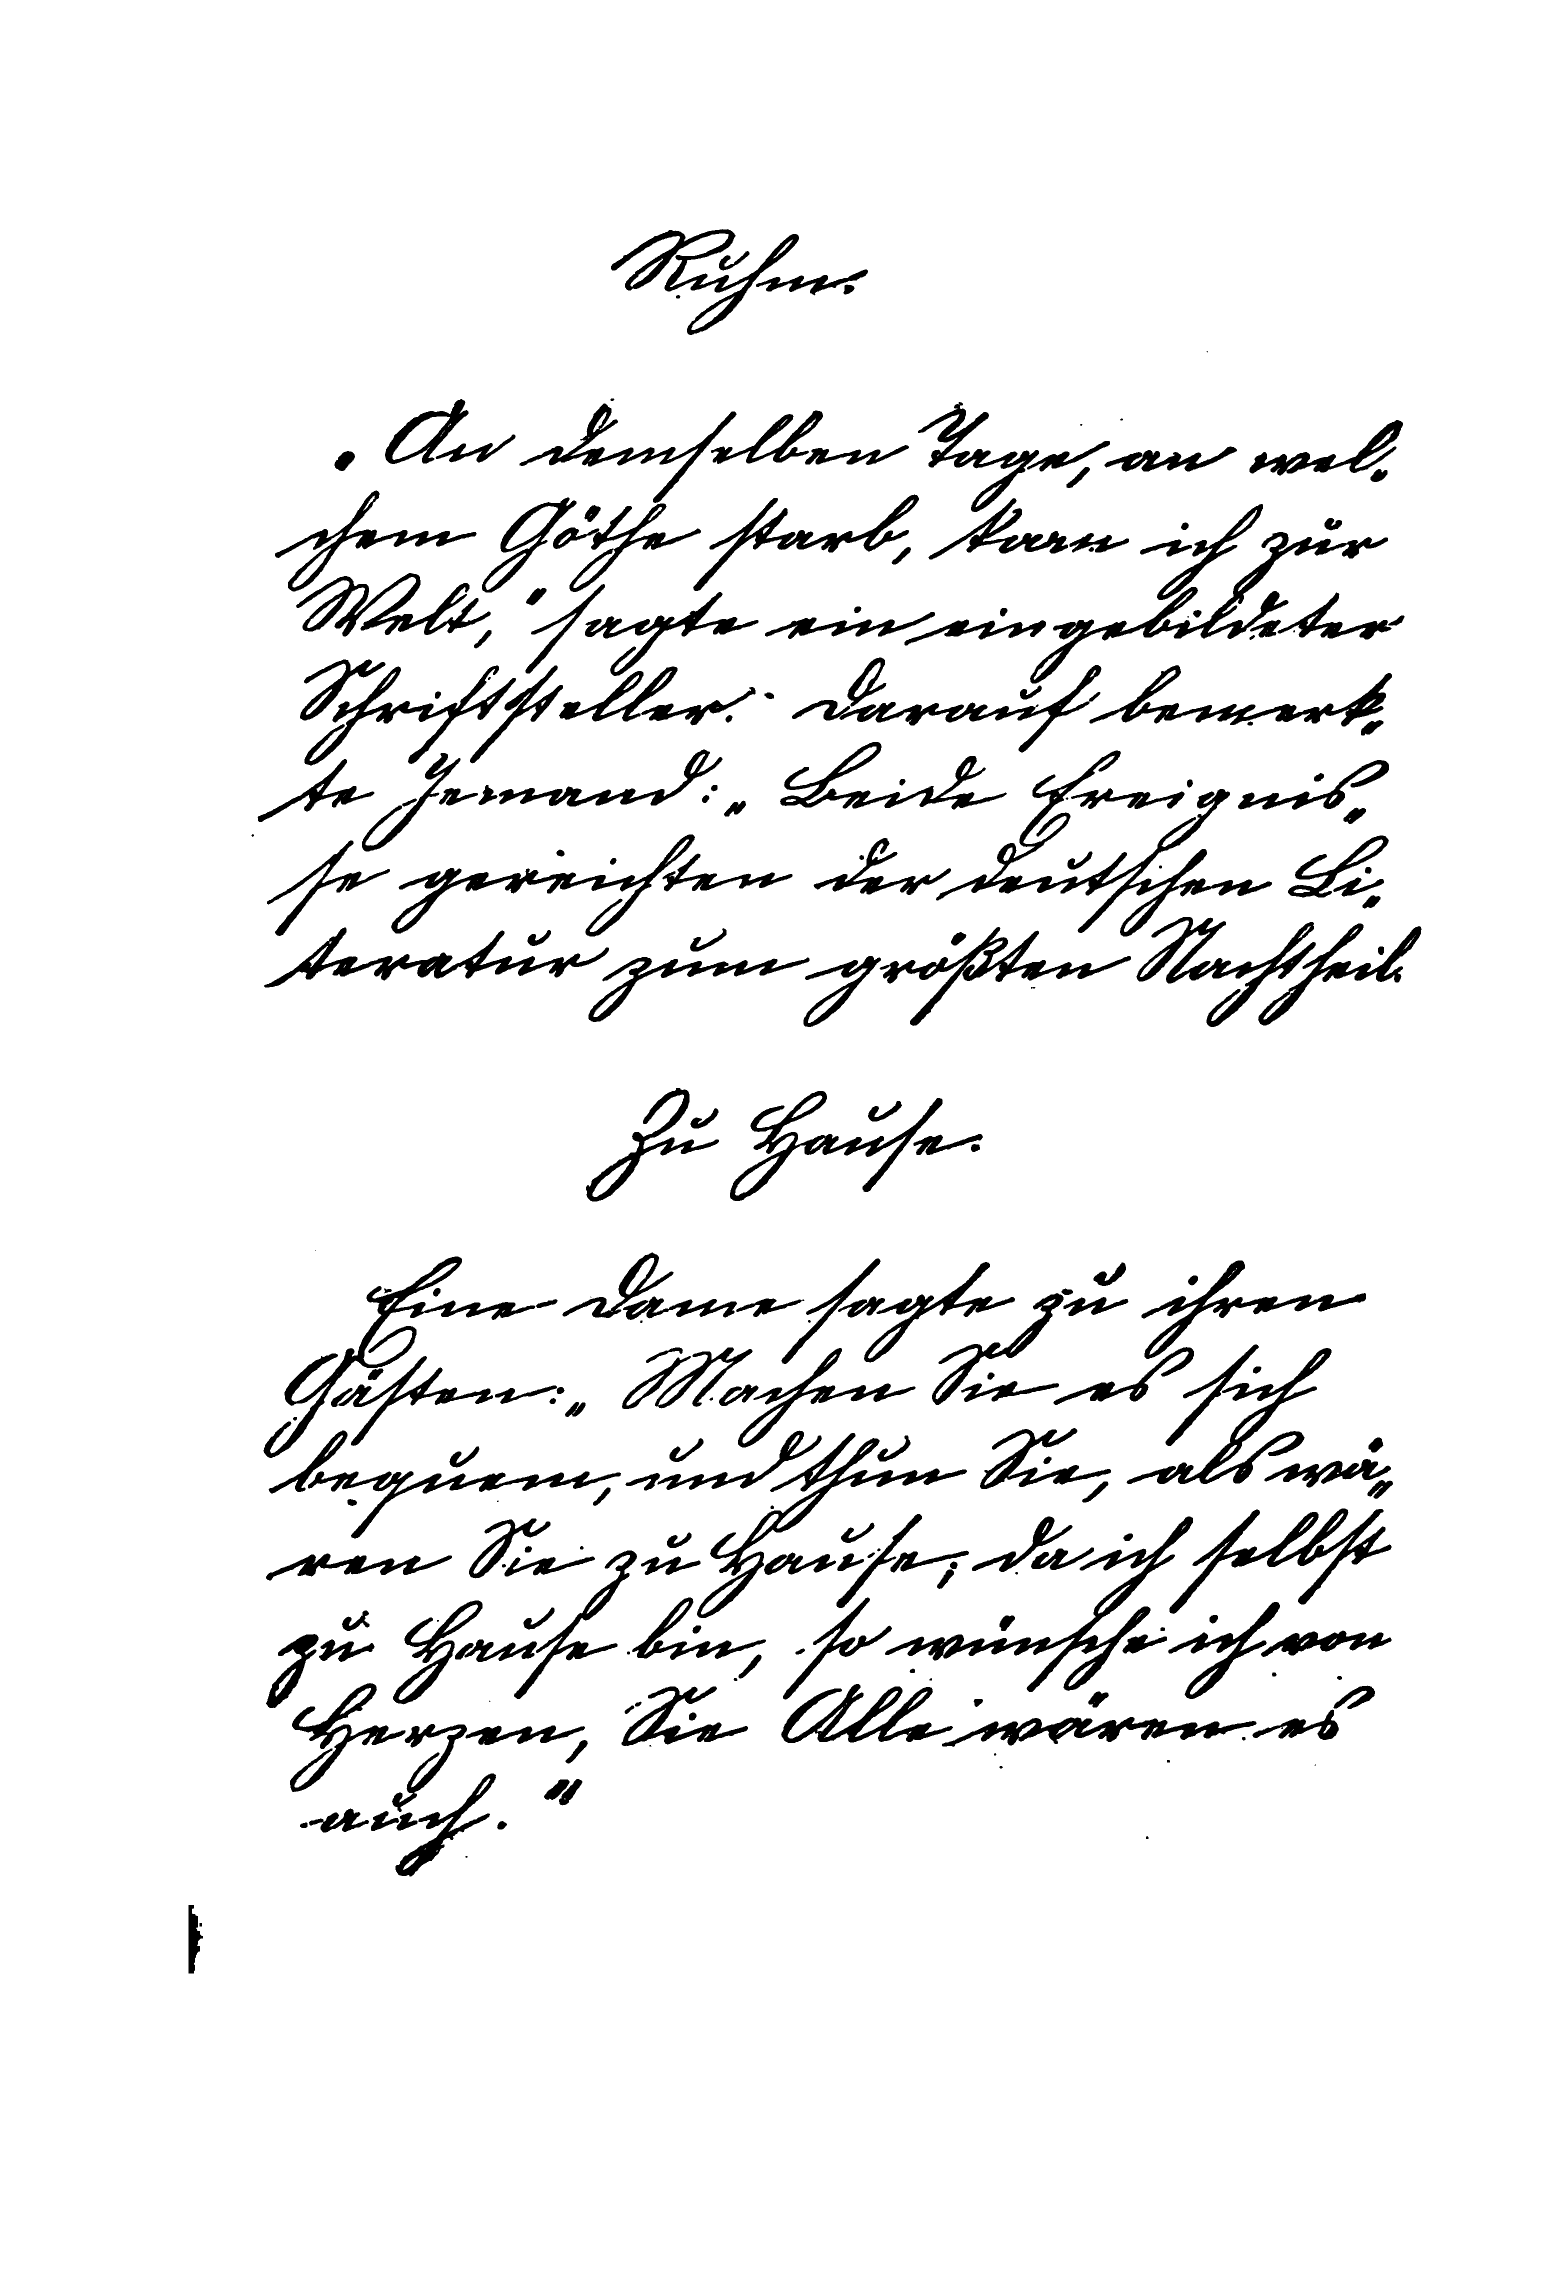 Ruhm.
„An demselben Tage, an wel„
chem Göthe starb, kam ich zur
Welt,“ sagte ein eingebildeter
Schriftsteller. Darauf bemerk„
te Jemand: „Beide Ereignis„
se gereichten der deutschen Li„
teratur zum größten Nachtheil.
Zu Hause.
Eine Dame sagte zu ihren
Gästen: „Machen Sie es sich
bequem, und thun Sie, als wä„
ren Sie zu Hause; da ich selbst
zu Hause bin, so wünsche ich von
Herzen, Sie Alle wären es
auch.“